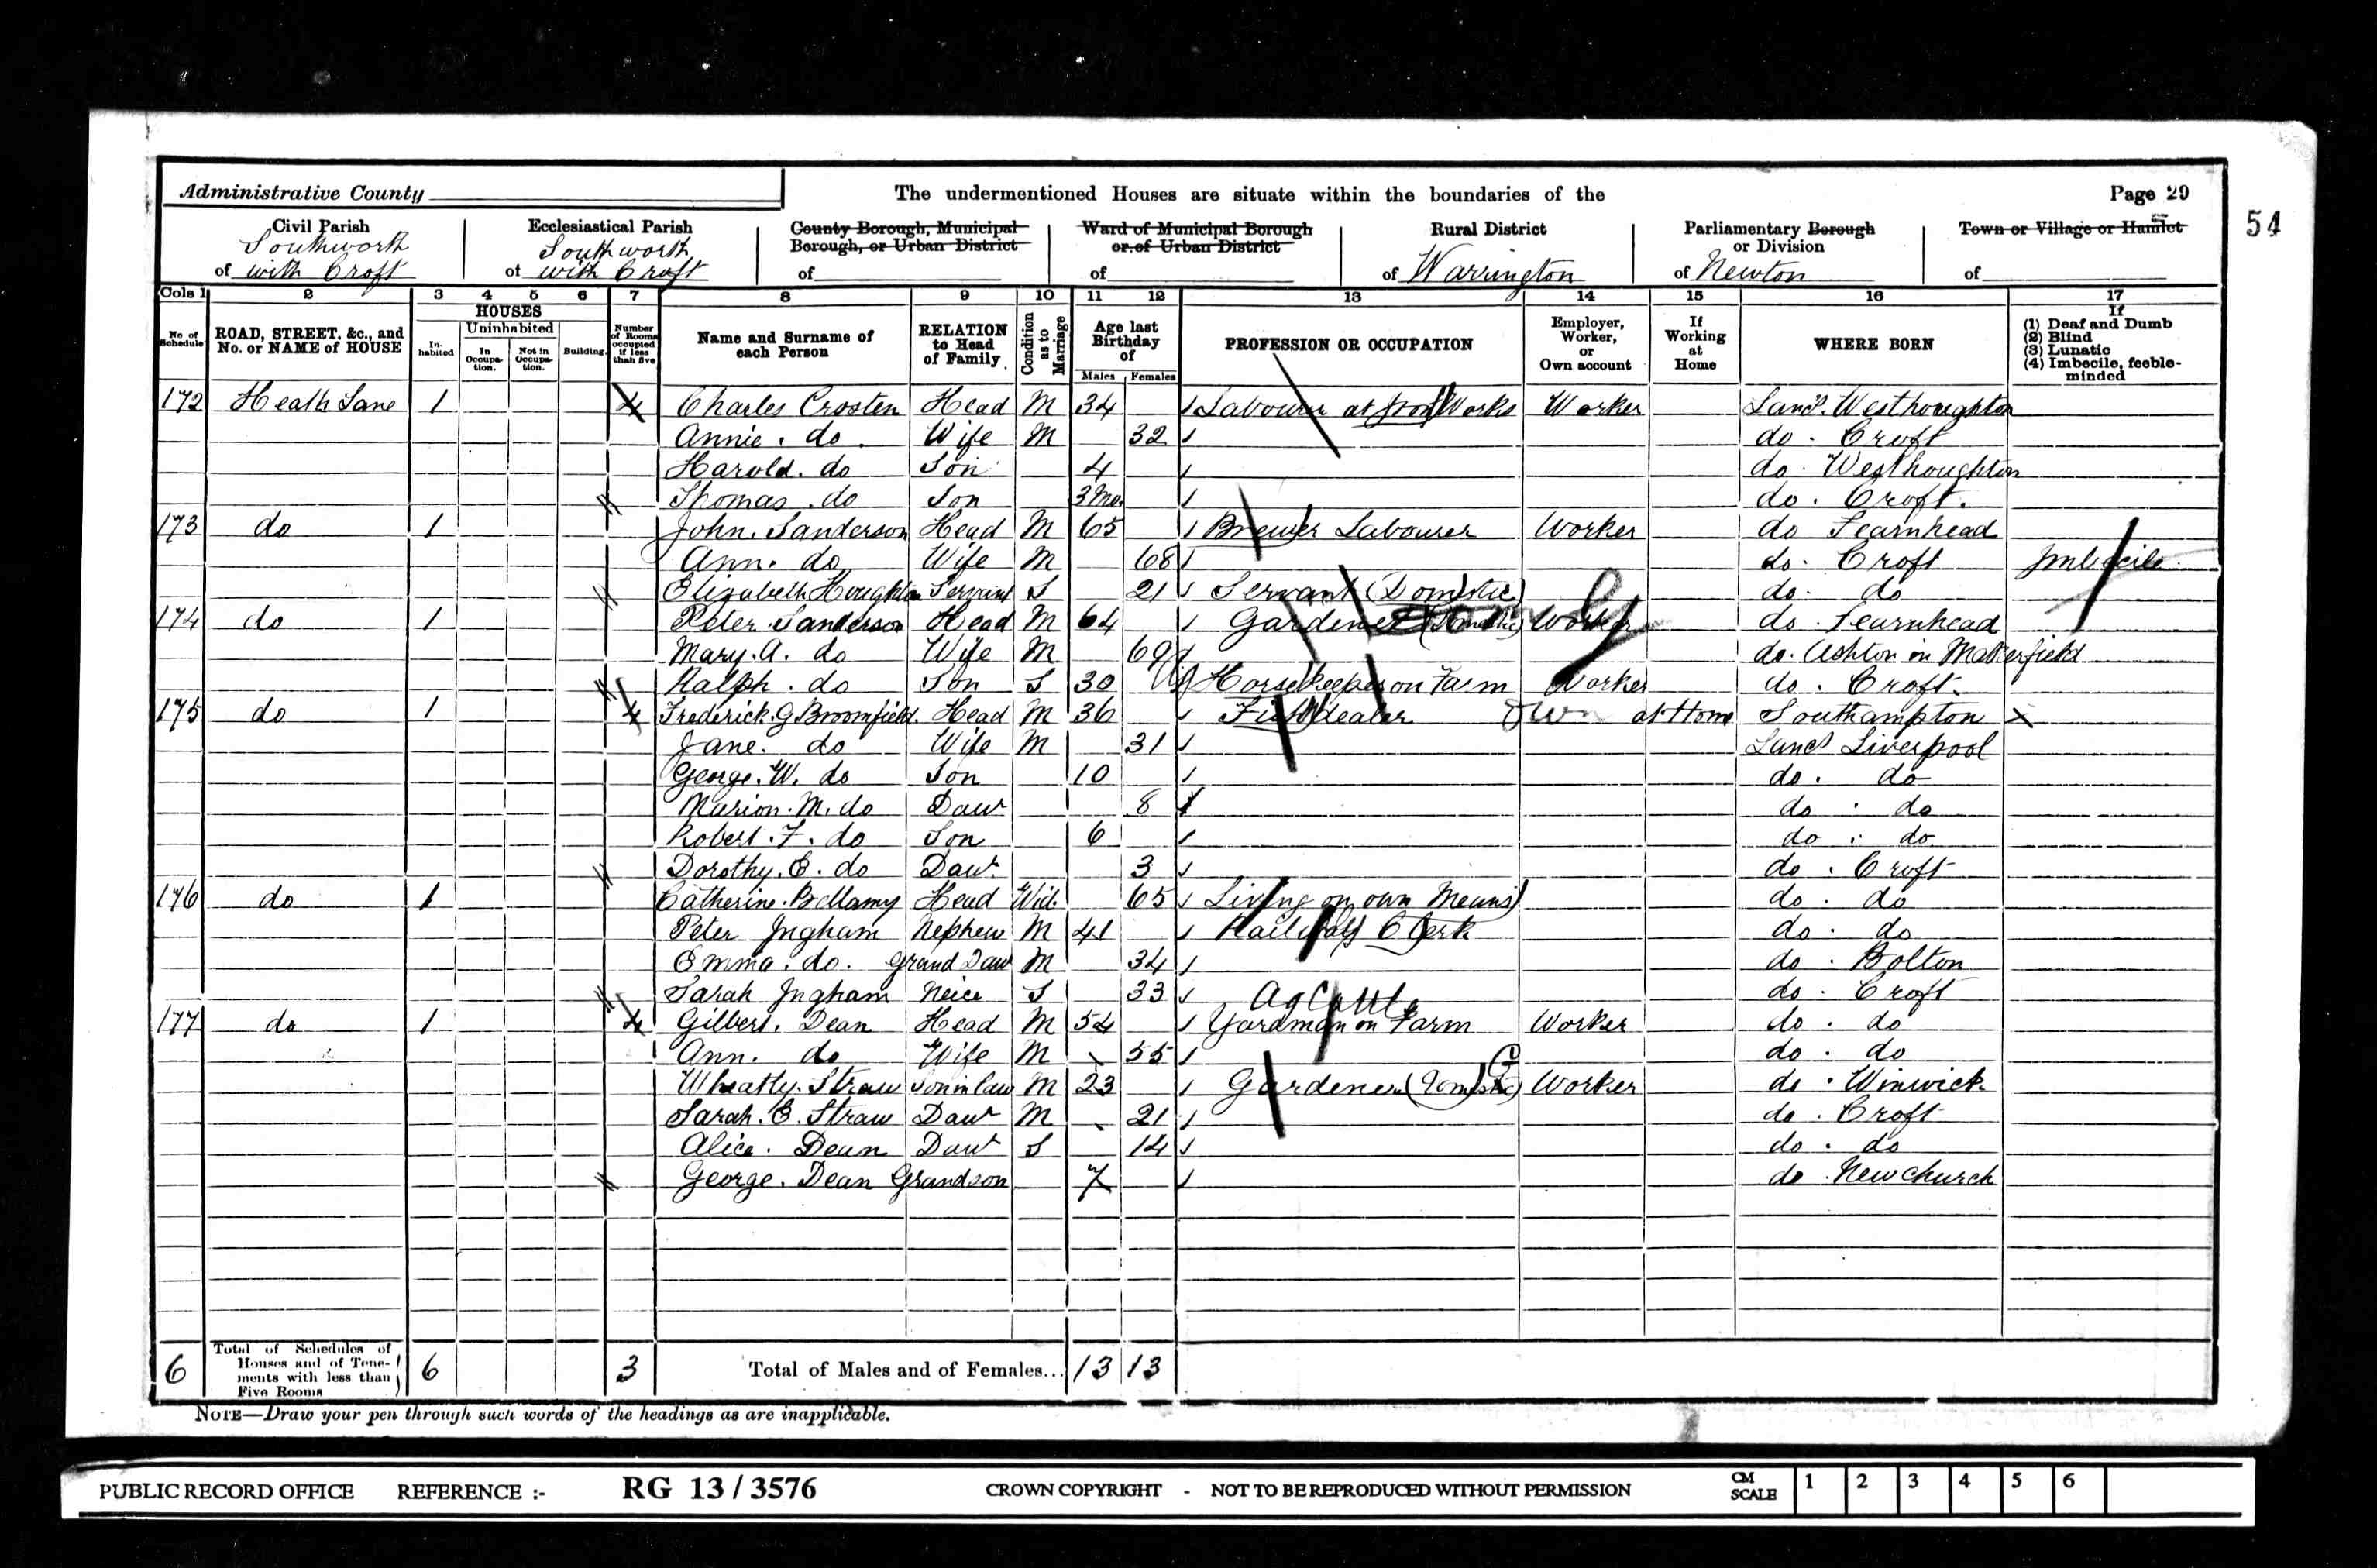 Administrative County
The undermentioned Houses are situate within the boundaries of the
Page 29
54
Civil Parish of Southworth with Croft
Ecclesiastical Parish of Southworth with Croft
County Borough, Municipal Borough, or Urban District of
Ward of Municipal Borough or of Urban District of
Rural District of Warrington
Parliamentary Borough or Division of Newton
Town or Village or Hamlet of
Cols 1 2 3 4 5 6 7 8 9 10 11 12 13 14 15 16 17
No. of Schedule
ROAD, STREET, &c., and No. or NAME of HOUSE
HOUSES
In-habited
Uninhabited
In Occupa-tion.
Not in Occupa-tion.
Building.
Number of Rooms occupied if less than five
Name and Surname of each Person
RELATION to Head of Family
Condition as to Marriage
Age last Birthday of
Males Females
PROFESSION OR OCCUPATION
Employer, Worker, or Own account
If Working at Home
WHERE BORN
If
(1) Deaf and Dumb
(2) Blind
(3) Lunatic
(4) Imbecile, feeble-minded
172 Heath Lane 1 4 Charles Crosten Head M 34 Labourer at Iron Works Worker Lancs. Westhoughton
Annie. do. Wife M 32 do. Croft
Harold. do Son 4 do. Westhoughton
Thomas. do Son 3 Mo. do. Croft.
173 do 1 John. Sanderson Head M 65 Brewer Labourer Worker do Fearnhead
Ann. do Wife M 68 do. Croft Imbecile
Elizabeth Houghton Servant S 21 Servant (Domestic) do. do
174 do 1 Peter Sanderson Head M 64 Gardener (Domestic) Worker do. Fearnhead
Mary. A. do Wife M 69 do. Ashton in Makerfield
Ralph. do Son S 30 Horsekeeper on Farm Worker do. Croft.
175 do 1 4 Frederick. G. Broomfield. Head M 36 Fish dealer Own at Home Southampton X
Jane. do Wife M 31 Lancs Liverpool
George. W. do Son 10 do. do
Marion. M. do Daur 8 do. do
Robert. F. do Son 6 do. do.
Dorothy. E. do Daur 3 do. Croft
176 do 1 Catherine. Bellamy Head Wid. 65 Living on own Means do. do
Peter Ingham Nephew M 41 Railway Clerk do. do
Emma. do. Grand Daur M 34 do. Bolton
Sarah Ingham Neice S 33 do. Croft
Ag Cattle
177 do 1 4 Gilbert. Dean Head M 54 Yardman on Farm Worker do. do
Ann. do Wife M 55 do. do
Wheatly. Straw Son in law M 23 Gardener (Domestic) Worker do. Winwick
Sarah. E. Straw Daur M 21 do. Croft
Alice. Dean Daur S 14 do. do
George. Dean Grandson 7 do. Newchurch
6 Total of Schedules of Houses and of Tene-ments with less than Five Rooms 6 3 Total of Males and of Females... 13 13
NOTE—Draw your pen through such words of the headings as are inapplicable.
PUBLIC RECORD OFFICE REFERENCE :- RG 13 / 3576 CROWN COPYRIGHT - NOT TO BE REPRODUCED WITHOUT PERMISSION CM SCALE 1 2 3 4 5 6